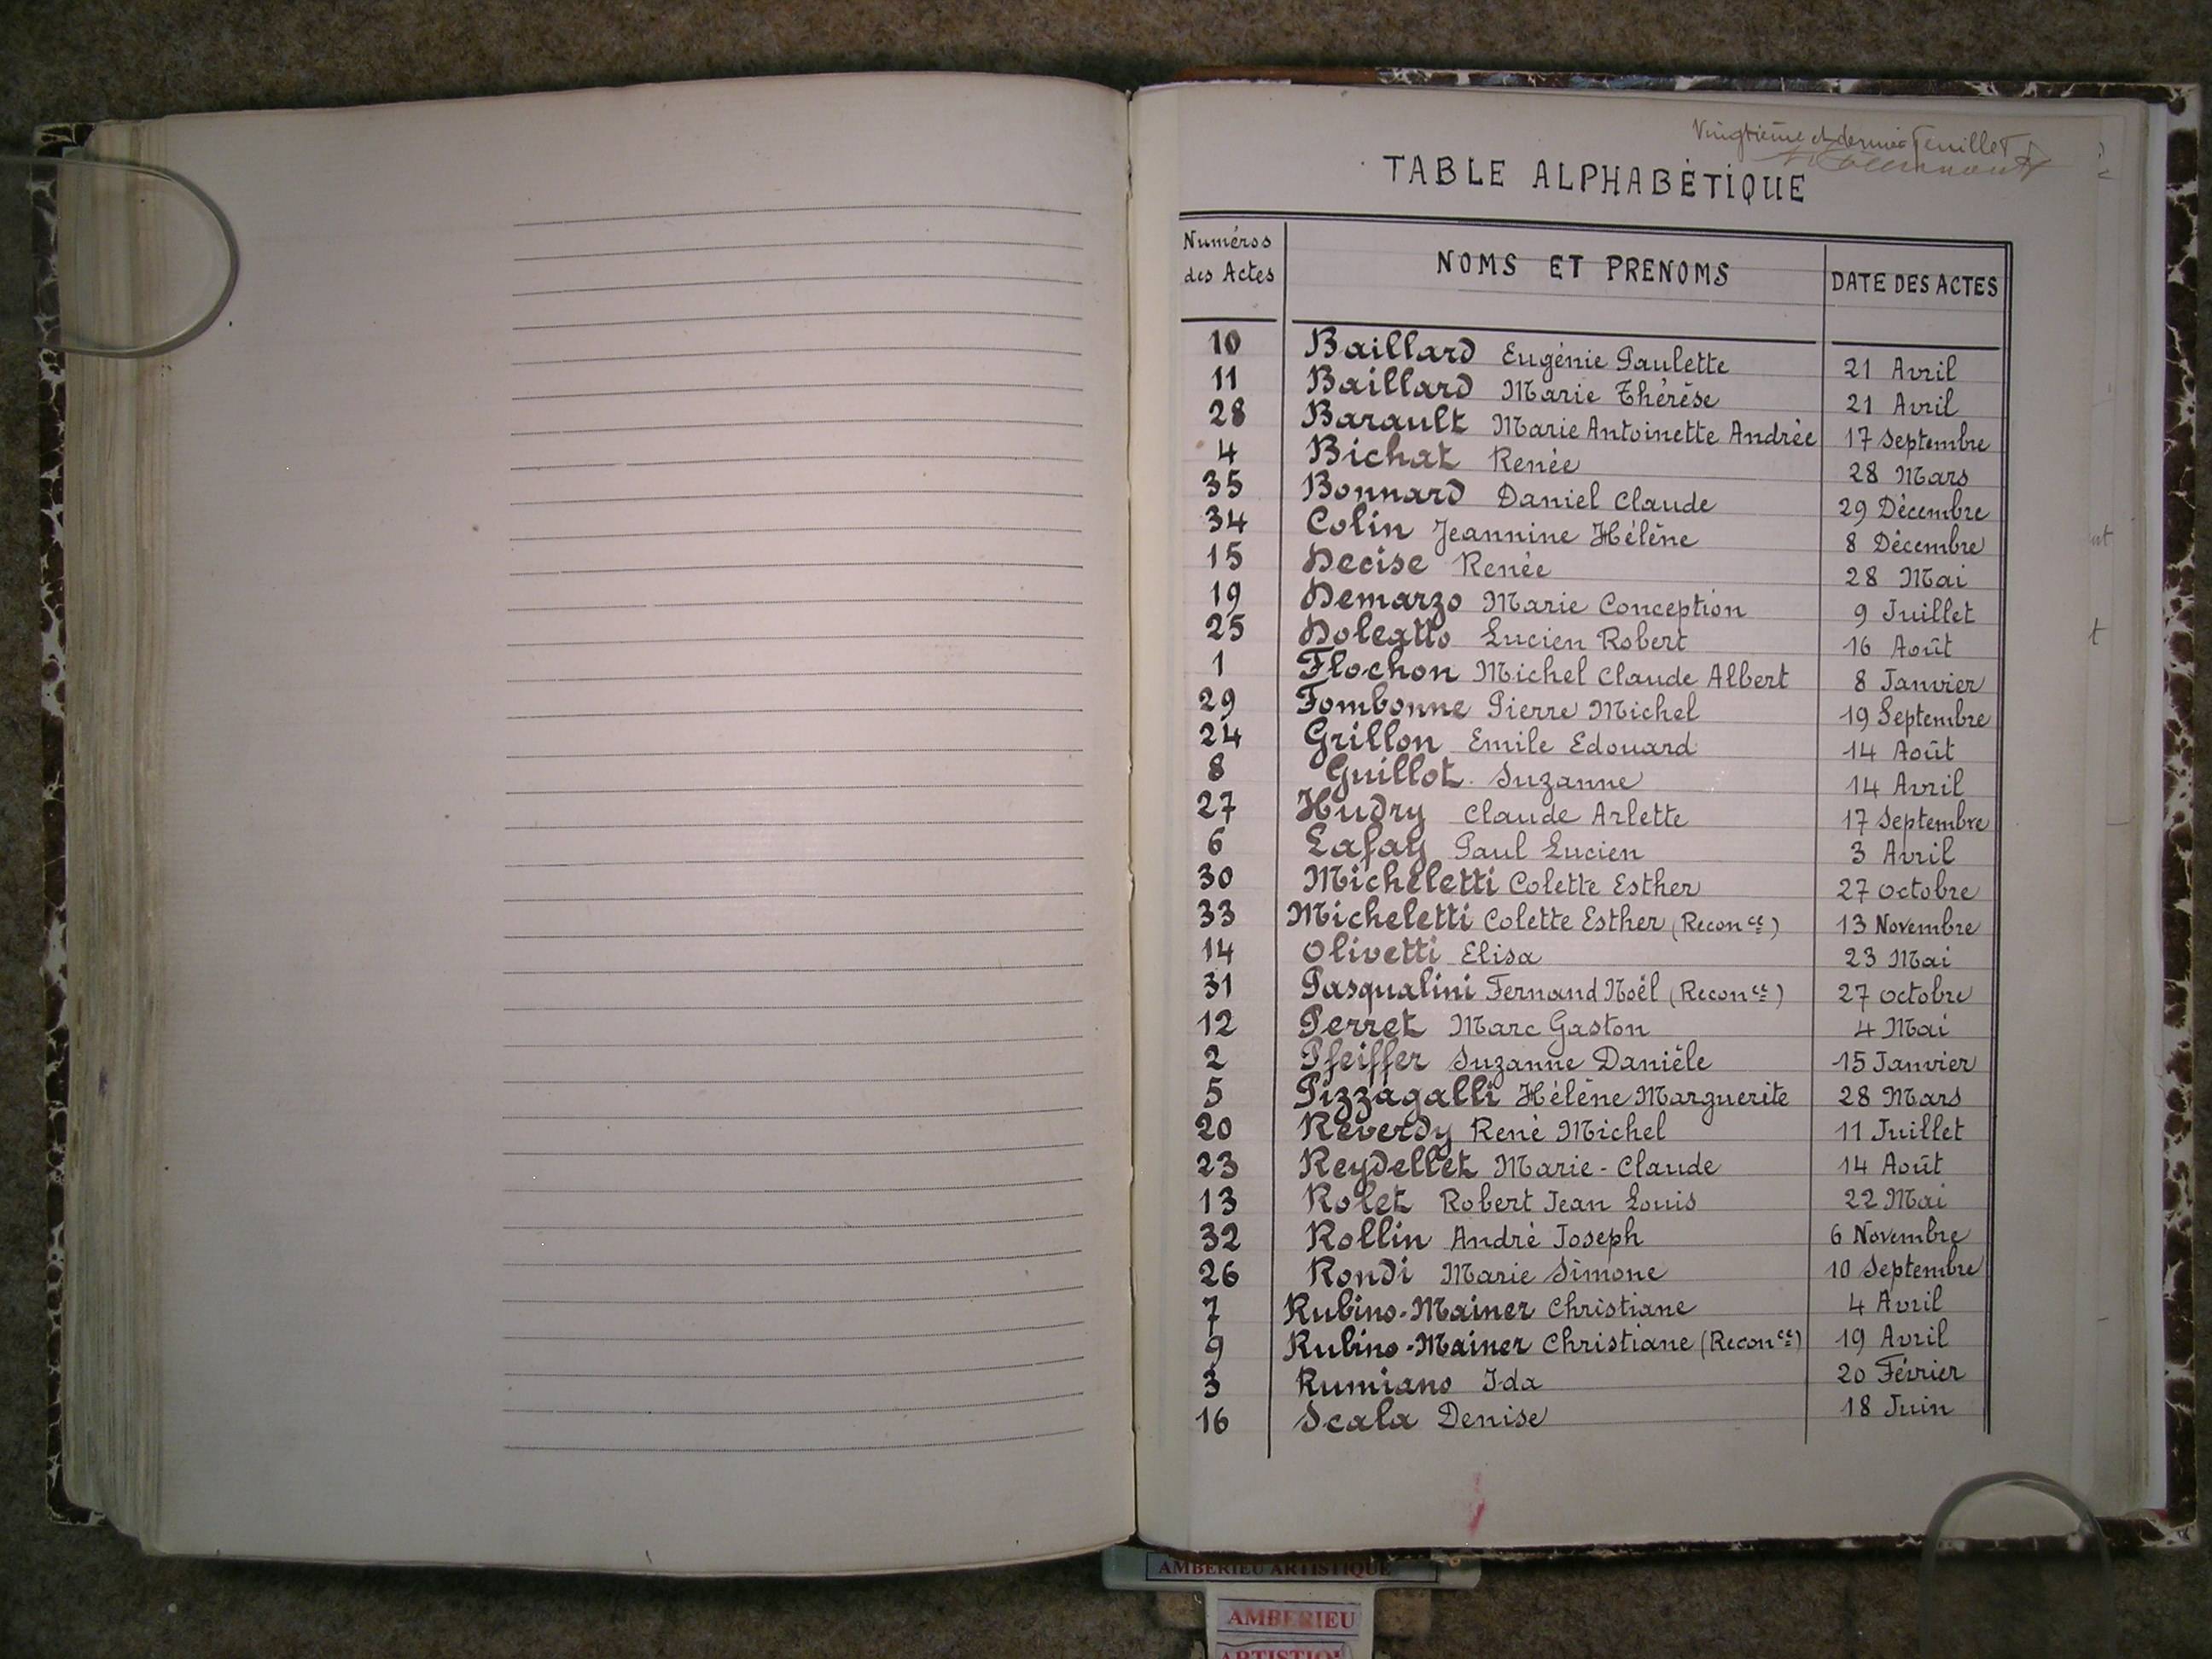 Vingtième et dernier feuillet
TABLE ALPHABÉTIQUE
Numéros des Actes NOMS ET PRENOMS DATE DES ACTES
10 Baillard Eugénie Paulette 21 Avril
11 Baillard Marie Thérèse 21 Avril
28 Barault Marie Antoinette Andrée 17 Septembre
4 Bichat Renée 28 Mars
35 Bonnard Daniel Claude 29 Décembre
34 Colin Jeannine Hélène 8 Décembre
15 Decise Renée 28 Mai
19 Demarzo Marie Conception 9 Juillet
25 Doleatto Lucien Robert 16 Août
1 Flochon Michel Claude Albert 8 Janvier
29 Fombonne Pierre Michel 19 Septembre
24 Grillon Emile Edouard 14 Août
8 Guillot Suzanne 14 Avril
27 Hudry Claude Arlette 17 Septembre
6 Lafay Paul Lucien 3 Avril
30 Micheletti Colette Esther 27 Octobre
33 Micheletti Colette Esther (Recon ce) 13 Novembre
14 Olivetti Elisa 23 Mai
31 Pasqualini Fernand Noël (Recon ce) 27 Octobre
12 Perret Marc Gaston 4 Mai
2 Pfeiffer Suzanne Danièle 15 Janvier
5 Pizzagalli Hélène Marguerite 28 Mars
20 Reverdy René Michel 11 Juillet
23 Reydellet Marie-Claude 14 Août
13 Rolet Robert Jean Louis 22 Mai
32 Rollin André Joseph 6 Novembre
26 Rondi Marie Simone 10 Septembre
7 Rubino-Mainer Christiane 4 Avril
9 Rubino-Mainer Christiane (Recon ce) 19 Avril
3 Rumiano Ida 20 Février
16 Scala Denise 18 Juin
AMBERIEU ARTISTIQUE
AMBERIEU